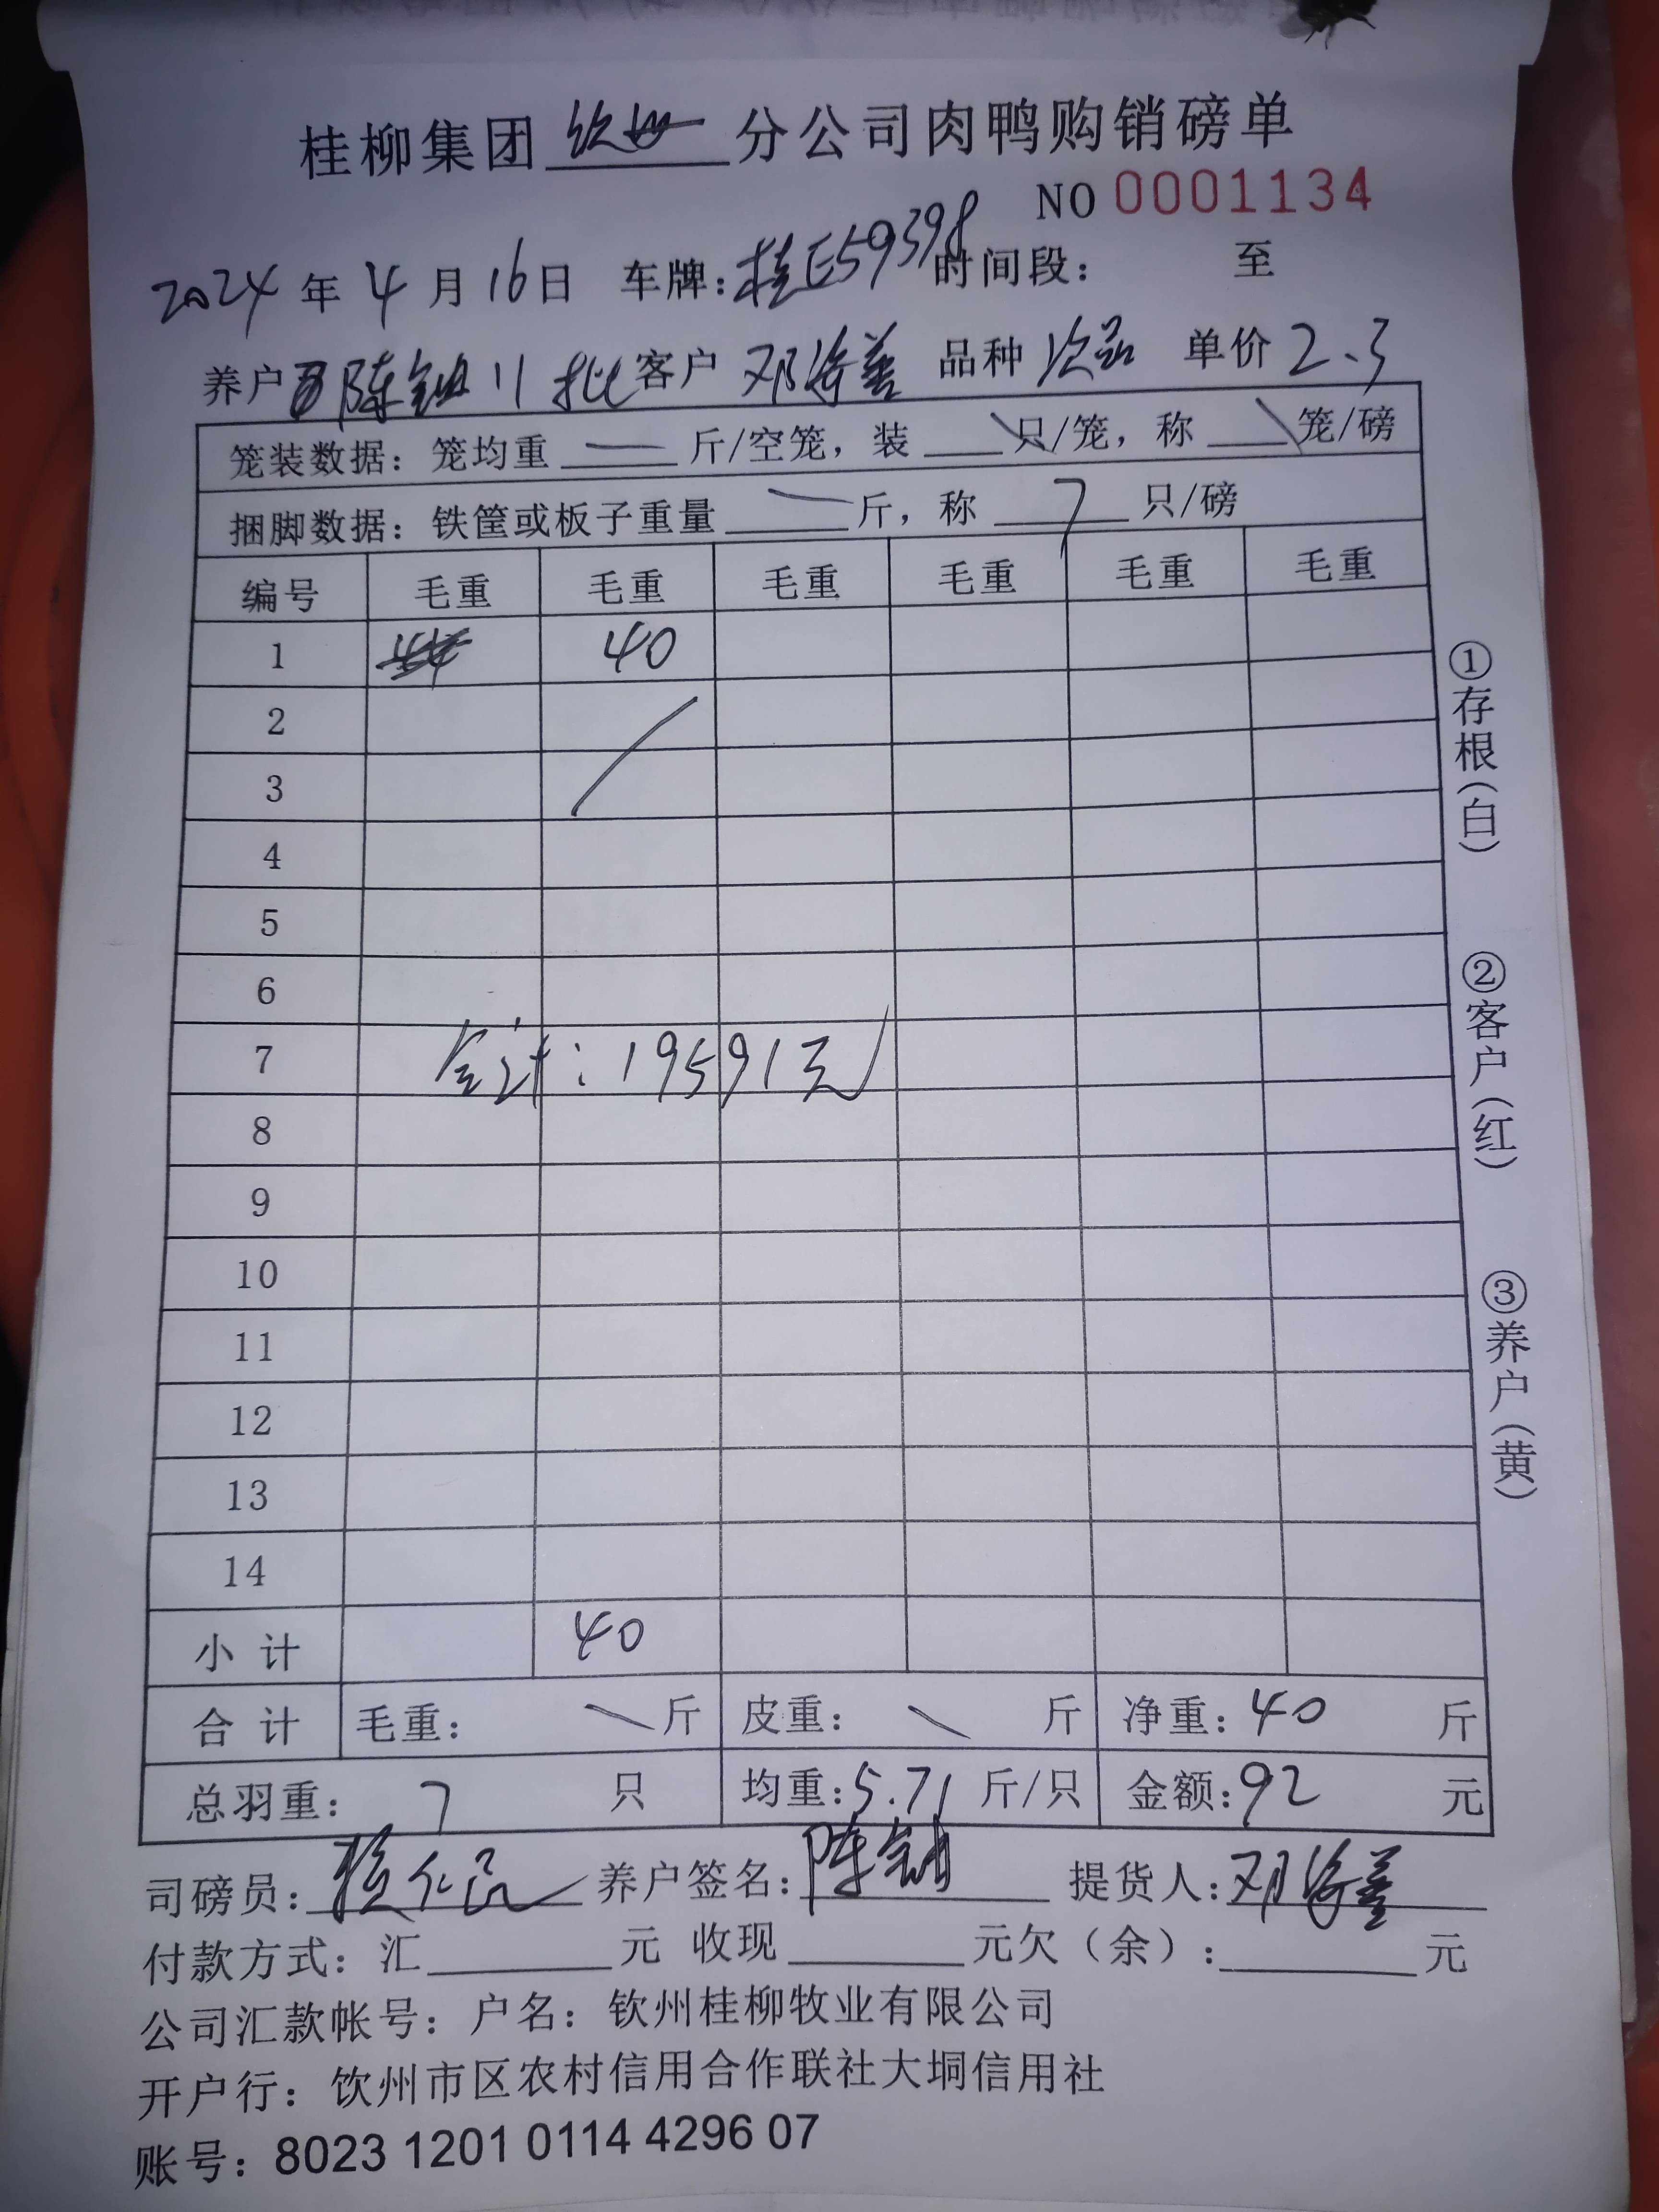 桂柳集团钦州分公司肉鸭购销磅单
NO 0001134
2024年4月16日 车牌:桂E59398时间段: 至
养户 陈 11批 客户 邓 善 品种 次品 单价 2.3
笼装数据: 笼均重 — 斤/空笼, 装 \ 只/笼, 称 \ 笼/磅
捆脚数据: 铁筐或板子重量 — 斤, 称 7 只/磅
编号 毛重 毛重 毛重 毛重 毛重 毛重
1 40
2
3
4
5
6
7 合计:19591元
8
9
10
11
12
13
14
小 计 40
合 计 毛重: \ 斤 皮重: \ 斤 净重: 40 斤
总羽重: 7 只 均重: 5.71 斤/只 金额: 92 元
司磅员: 养户签名: 陈 提货人: 邓 善
付款方式: 汇 元 收现 元欠(余): 元
公司汇款帐号: 户名: 钦州桂柳牧业有限公司
开户行: 钦州市区农村信用合作联社大垌信用社
账号: 8023 1201 0114 4296 07
①存根(白)
②客户(红)
③养户(黄)